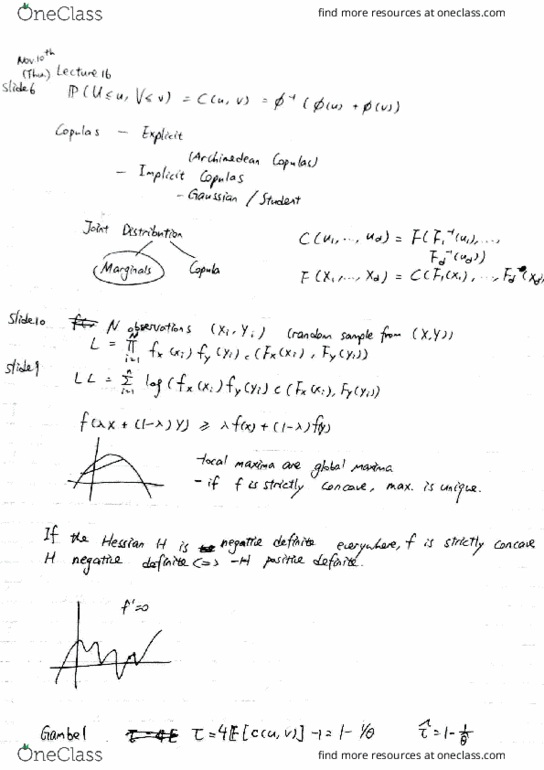 OneClass
find more resources at oneclass.com
Nov 10th
(Thu.) Lecture 16
Slide 6
P(U ≤ u, V ≤ v) = C(u, v) = φ⁻¹(φ(u) + φ(v))
Copulas – Explicit
(Archimedean Copulas)
– Implicit Copulas
– Gaussian / Student
Joint Distribution
Marginals Copula
C(u₁, ..., u_d) = F(F₁⁻¹(u₁), ...,
F_d⁻¹(u_d))
F(x₁, ..., x_d) = C(F₁(x₁), ..., F_d(x_d)
Slide 10
N observations (Xᵢ, Yᵢ) (random sample from (X,Y))
L = ∏ᵢ₌₁ᴺ f_x(xᵢ) f_y(yᵢ) c(F_x(xᵢ), F_y(yᵢ))
Slide 9
LL = Σᵢ₌₁ⁿ log(f_x(xᵢ) f_y(yᵢ) c(F_x(xᵢ), F_y(yᵢ))
f(λx + (1-λ)y) ≥ λf(x) + (1-λ)f(y)
-local maxima are global maxima
- if f is strictly concave, max. is unique.
If the Hessian H is negative definite everywhere, f is strictly concave
H negative definite <=> -H positive definite.
f'=0
Gambel τ = 4E τ = 4E[C(u,v)] -1 = 1 - 1/θ τ̂ = 1 - 1/θ̂
OneClass
find more resources at oneclass.com